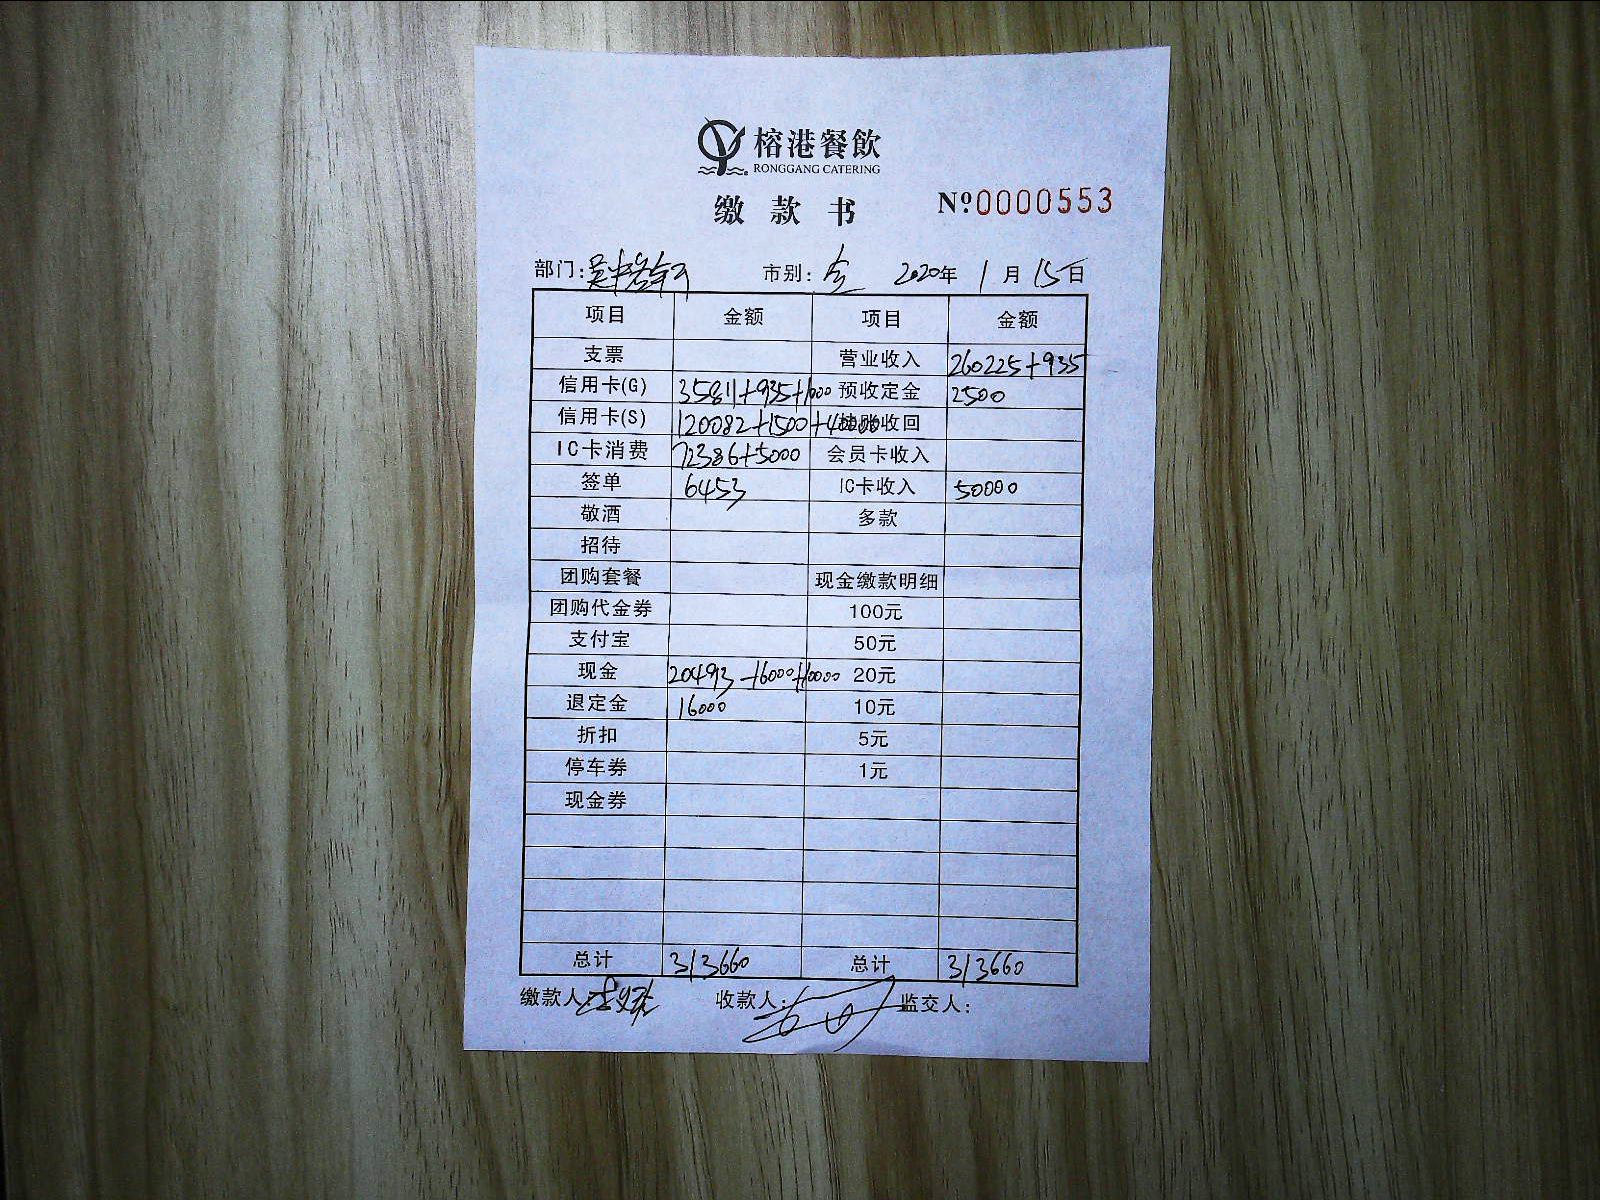 榕港餐飲
RONGGANG CATERING
缴款书 Nº0000553
部门: 市别:全 2020年1月15日
项目 金额 项目 金额
支票 营业收入 260225+935
信用卡(G) 35811+935+1000 预收定金 2500
信用卡(S) 120082+1500+40000 挂账收回
IC卡消费 72386+5000 会员卡收入
签单 6453 IC卡收入 50000
敬酒 多款
招待
团购套餐 现金缴款明细
团购代金券 100元
支付宝 50元
现金 20493-16000+10000 20元
退定金 16000 10元
折扣 5元
停车券 1元
现金券
总计 313660 总计 313660
缴款人: 收款人: 监交人: